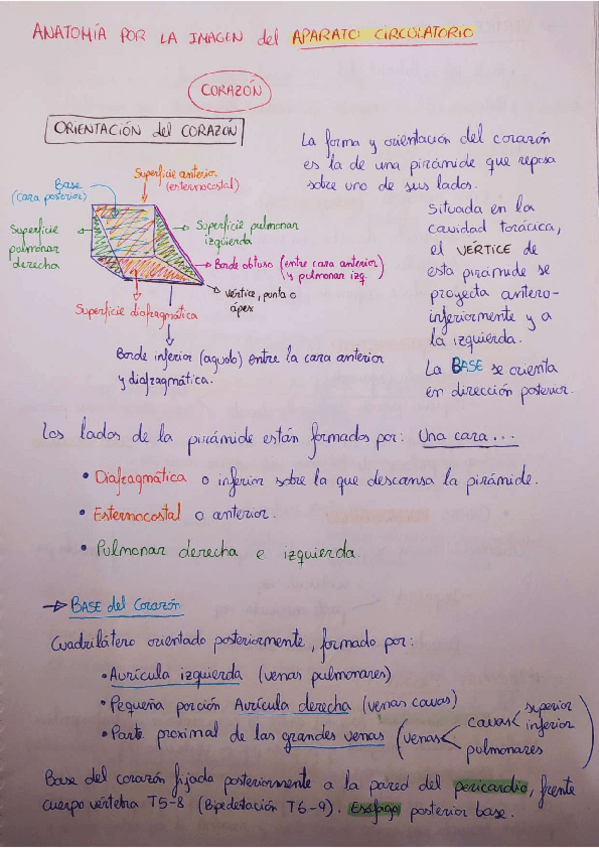 ANATOMÍA POR LA IMAGEN del APARATO CIRCULATORIO
CORAZÓN
ORIENTACIÓN del CORAZÓN
La forma y orientación del corazón
es la de una pirámide que reposa
sobre uno de sus lados.
Situada en la
cavidad torácica,
el VÉRTICE de
esta pirámide se
proyecta antero-
inferiormente y a
la izquierda.
La BASE se orienta
en dirección posterior.
Base
(cara posterior)
Superficie anterior
(esternocostal)
Superficie
pulmonar
derecha
Superficie pulmonar
izquierda
Borde obtuso (entre cara anterior
y pulmonar izq.)
vértice, punta o
ápex
Superficie diafragmática
Borde inferior (agudo) entre la cara anterior
y diafragmática.
Los lados de la pirámide están formados por: Una cara...
• Diafragmática o inferior sobre la que descansa la pirámide.
• Esternocostal o anterior.
• Pulmonar derecha e izquierda.
→ BASE del Corazón
Cuadrilátero orientado posteriormente, formado por:
• Aurícula izquierda (venas pulmonares)
• Pequeña porción Aurícula derecha (venas cavas)
• Parte proximal de las grandes venas (venas < cavas < superior
inferior
pulmonares)
Base del corazón fijada posteriormente a la pared del pericardio, frente
cuerpo vértebra T5-8 (Bipedestación T6-9). Esófago posterior base.